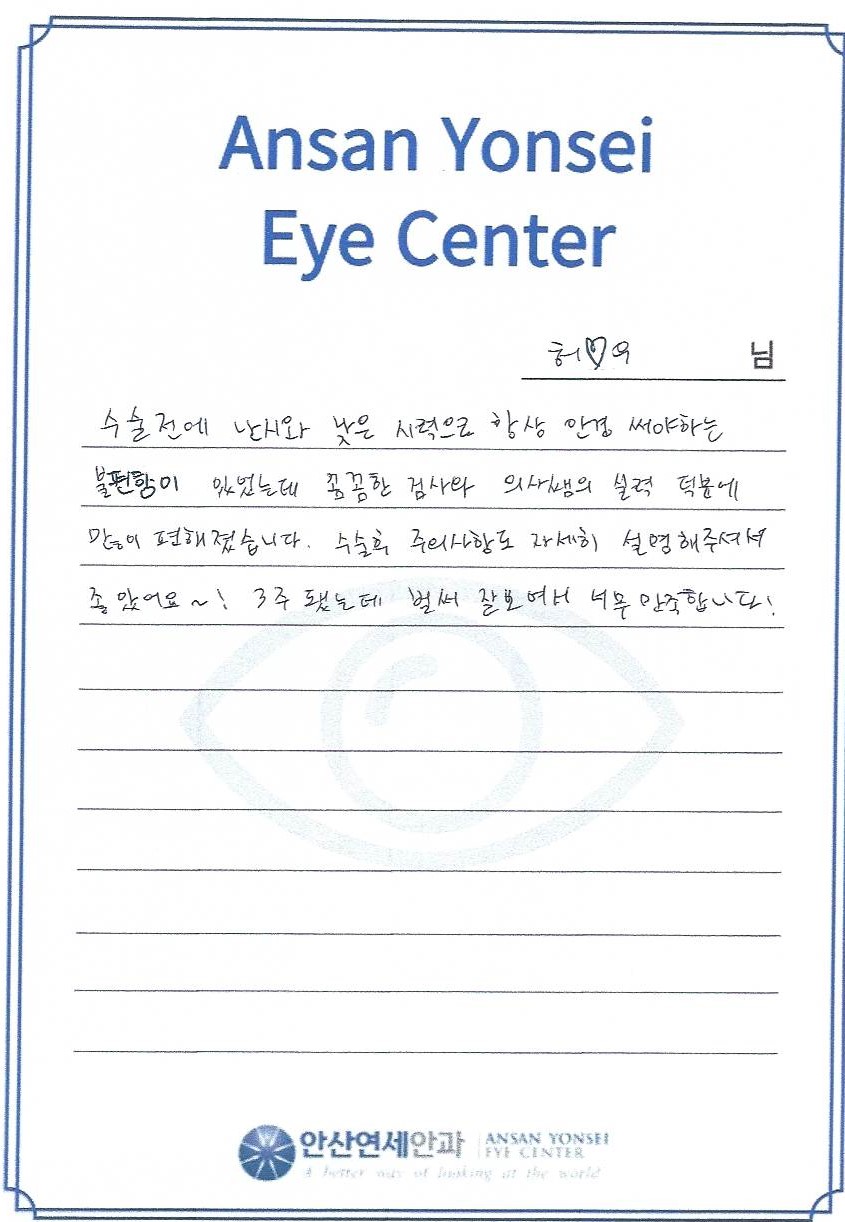 Ansan Yonsei
Eye Center
허♡우 님
수술전에 난시와 낮은 시력으로 항상 안경 써야하는
불편함이 있었는데 꼼꼼한 검사와 의사쌤의 실력 덕분에
많이 편해졌습니다. 수술후 주의사항도 자세히 설명해주셔서
좋았어요~! 3주 됐는데 벌써 잘보여서 너무 만족합니다!
안산연세안과 ANSAN YONSEI
EYE CENTER
A better way of looking at the world